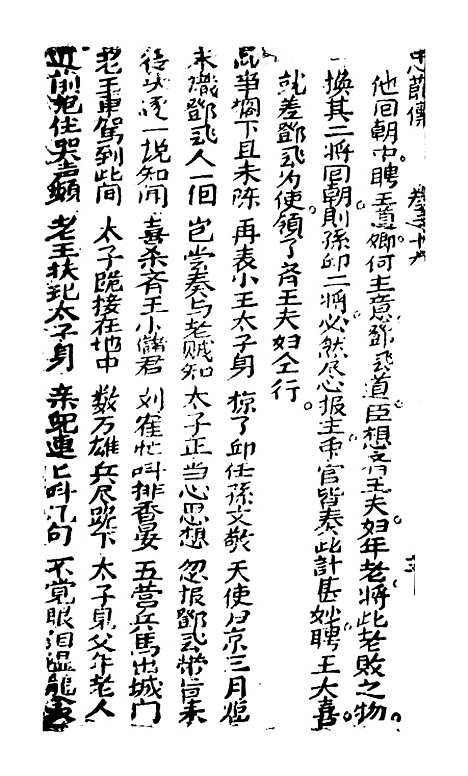 忠節傳 卷之十六
他回朝中。聘王喜。卿何主意。鄧飛道。臣想齐王夫妇年老。將此老敗之物。
換其二將回朝。則孫邱二將必然尽心报主。帝官皆奏此計甚妙。聘王大喜。
就差鄧飛为使。領了齐王夫妇仝行。
此事擱下且未陈 再表小王太子身 掠了邱任孫文敬 天使回京三月
未識鄧飛人一回 岂学奏与老贼知 太子正当心思想 忽报鄧飛
從头逐一説知闻 喜杀齐王小儲君 刘崔忙叫排香晏 五营兵馬出城门
老王車駕到此间 太子跪接在地中 数万雄兵尽跪下 太子見父年老人
近前抱住哭声 老王扶起太子身 亲 連上叫几句 不觉眼泪湿龍